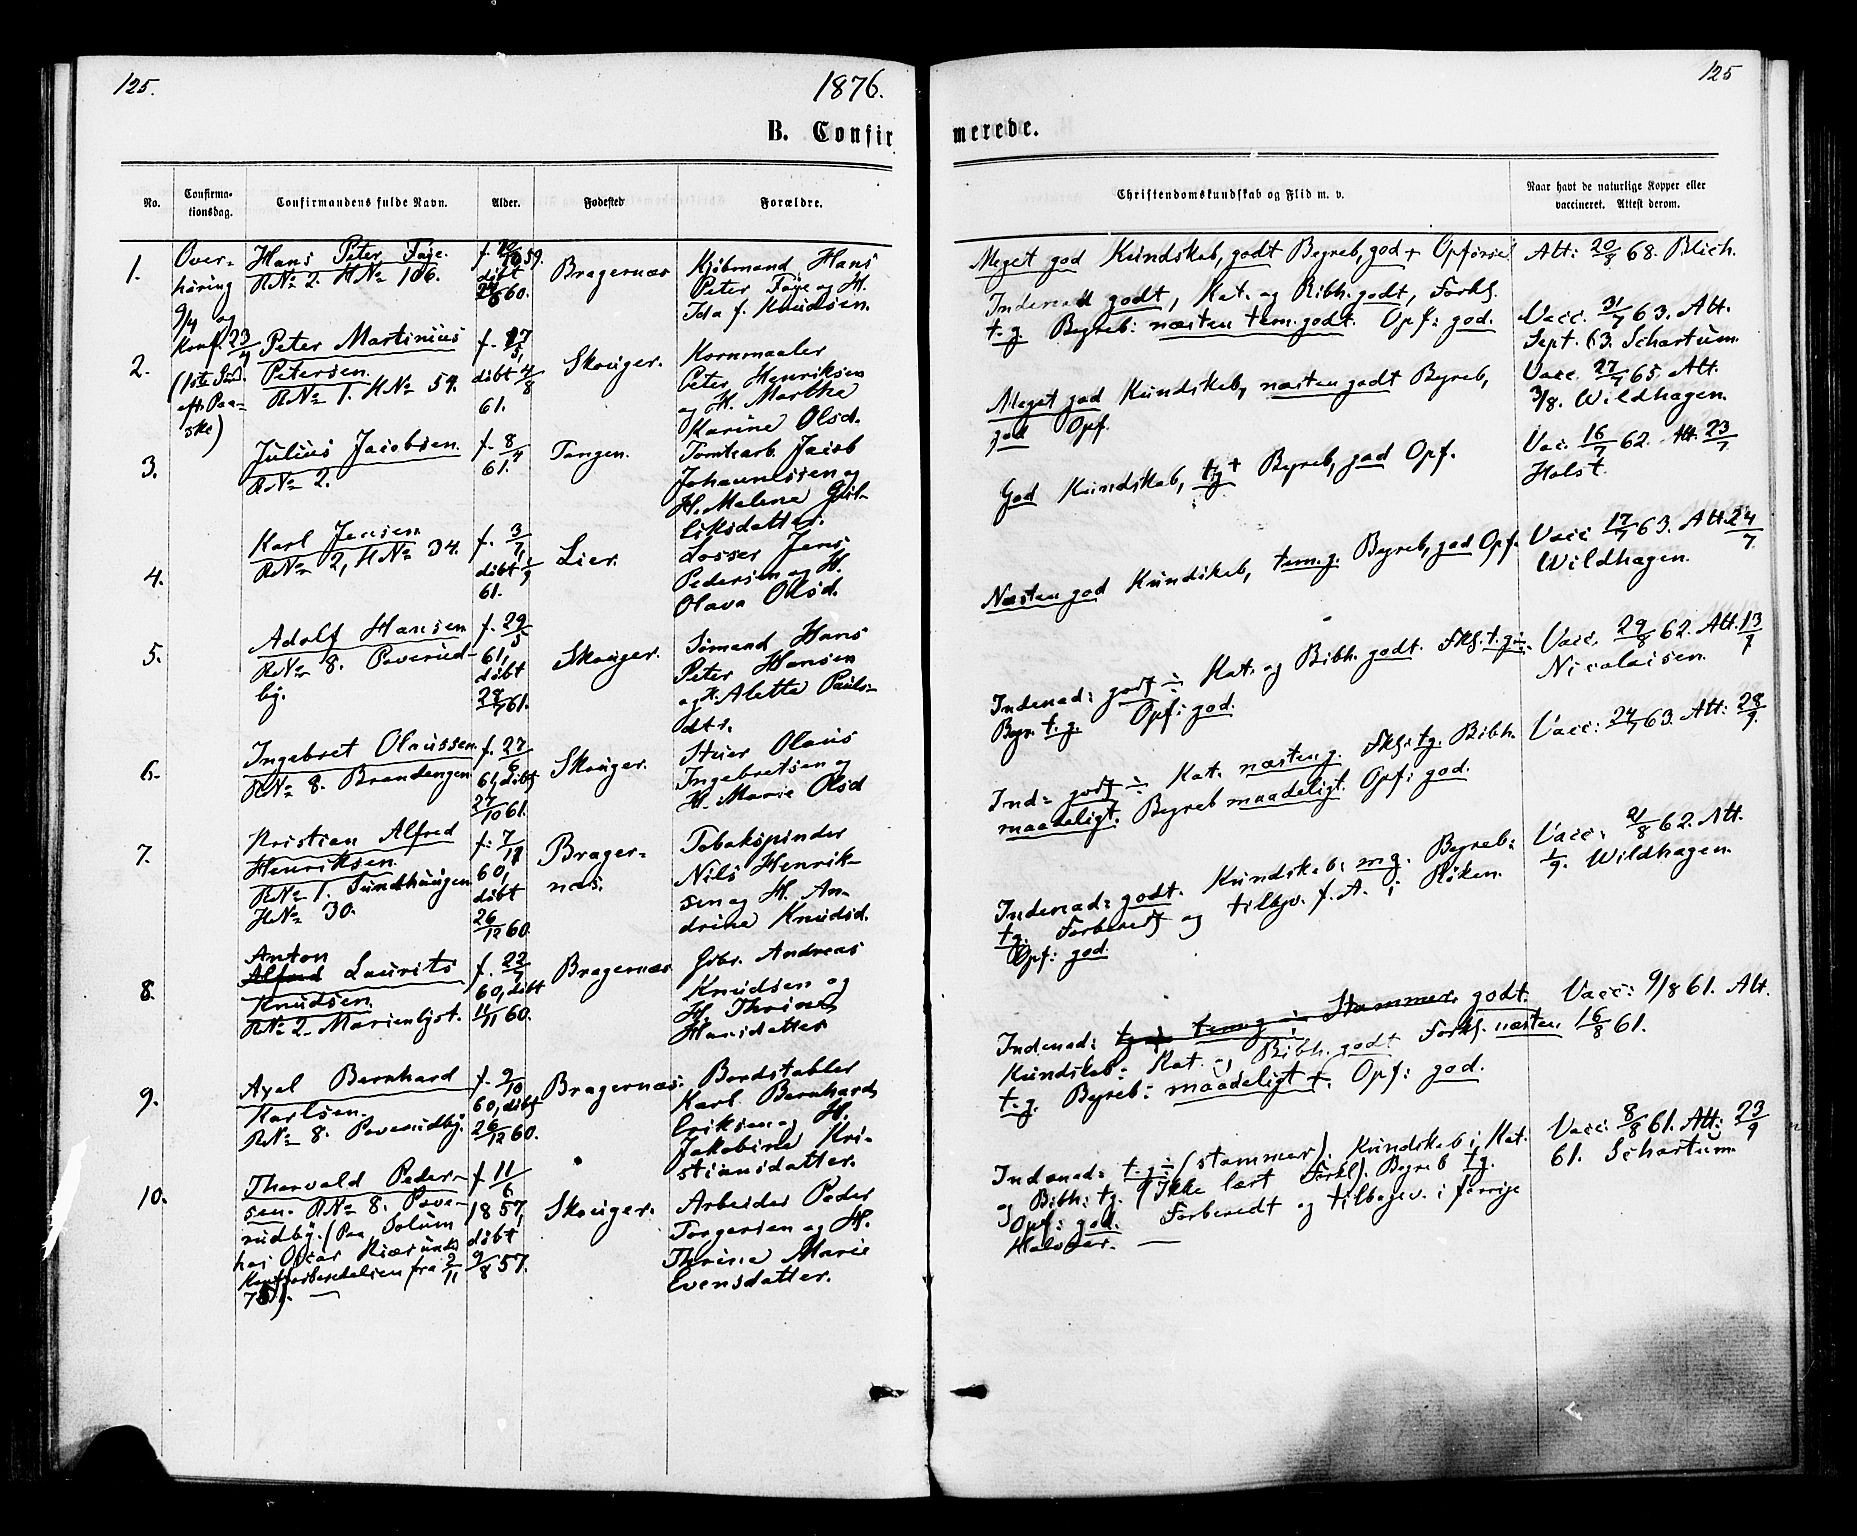 125.
1876.
125
B. Confir
merede.
No.
Confirma-
tionsdag.
Confirmandens fulde Navn.
Alder.
Fødested
Forældre.
Christendomskundskab og Flid m. v.
Naar havt de naturlige Kopper eller
vaccineret. Attest derom.
Over-
høring
9/4 og
Konf. 23/4
(1ste Sønd.
eft. Paa-
ske)
1.
Hans Peter Føye.
RNo 2. HNo 106.
døbt
60.
Bragernæs
Kjøbmand Hans
Peter Føye og H.
Ida f. Knudsen.
Meget god Kundskab, godt Begreb, god + Opførsel
Att: 68. Blich.
2.
Peter Martinius
Petersen.
RNo 1. HNo 59.
døbt 4/8
61.
Skouger.
Kornmaaler
Peter Henriksen
og H. Marthe
Karine Olsd.
Indenad godt, Kat. og Bibh. godt, Forkl.
t.g. Begreb: næsten tem. godt. Opf: god.
Vacc. 31/7 63. Att.
Sept. 63. Schartum.
3.
Julius Jacobsen.
RNo 2.
f. 8/4
61.
Tangen.
Tomtearb. Jacob
Johannessen og
H. Malene
Meget god Kundskab, næsten godt Begreb,
god Opf.
Vacc. 27/7 65. Att.
3/8. Wildhagen.
4.
Karl Jensen
RNo 2, HNo 34.
f. 3/7,
døbt 1/9
61.
Lier.
Losser Jens
Pedersen og H.
Olava Olsd.
God Kundskab, tg + Begreb, god Opf.
Vac. 16/7 62. Att. 23/7
Holst.
5.
Adolf Hansen
RNo 8. Poverud-
by.
f. 29/5
61,
døbt
28/7 61.
Skouger.
Sømand Hans
Peter Hansen
og H. Alette Pauls-
dtr.
Næsten god Kundskab, tem. g. Begreb, god Opf.
Vacc 17/7 63. Att. 24/7
Wildhagen.
6.
Ingebret Olaussen.
RNo 8. Brandengen
f. 27/6
61, døbt
27/10 61.
Skouger.
Huser Olaus
Ingebretsen og
H. Marie Olsd
Indenad: godt ÷ Kat. og Bibh. godt. Fkl. t.g ÷.
Begr. t.g. Opf: god.
Vacc. 29/8 62. Att. 13/9
Nicolaisen.
7.
Kristian Alfred
Henriksen.
RNo 1. Sundhaugen
HNo 30.
f: 7/11
60,
døbt
26/12 60.
Brager-
næs.
Tobakspinder
Nils Henrik-
sen og H. An-
drine Knudsd.
Ind: godt ÷ Kat. næsten g. Fkl: tg. Bibh.
maadeligt. Begreb maadeligt. Opf: god.
Vacc: 24/7 63. Att: 28/9.
8.
Anton
Alfred Laurits
Knudsen.
RNo 2. Marienlyst.
f. 22/7
60, døbt
11/11 60.
Bragernæs
Gbr. Andreas
Knudsen og
H. Thrine
Hansdatter
Indenad: godt. Kundskab: mg. Begreb:
tg. Forberedt og tilbgv. f. A. i Røken.
Opf: god.
Vacc: 21/8 62. Att.
1/9. Wildhagen.
9.
Axel Bernhard
Karlsen.
RNo 8. Poverudby.
f. 9/10
60, døbt
26/12 60.
Bragernæs.
Bordstabler
Karl Bernhard
Eriksen og H.
Jakobine Kri-
stiansdatter.
Indenad: tg ÷ temg ÷ Stammer. godt.
Kundskab: Kat. og Bibh. godt Forkl. næsten
t.g. Begreb: maadeligt +. Opf: god.
Vacc: 9/8 61. Att.
16/8 61.
10.
Thorvald Peder-
sen. RNo 8. Pove-
rudby. (Paa Solum
hos Oscar Kiær under
Konf.forberedelsen fra 2/11
75).
f. 11/6
1857,
døbt
9/8 57.
Skouger.
Arbeider Peder
Torgersen og H.
Thrine Marie
Evensdatter.
Indenad: t.g ÷ (stammer). Kundskab i Kat.
og Bibh: tg. (Ikke læst Forkl). Begreb tg.
Opf: god. Forberedt og tilbagev. i forrige
Halvaar.
Vacc: 8/8 61. Att: 23/9
61. Schartum.